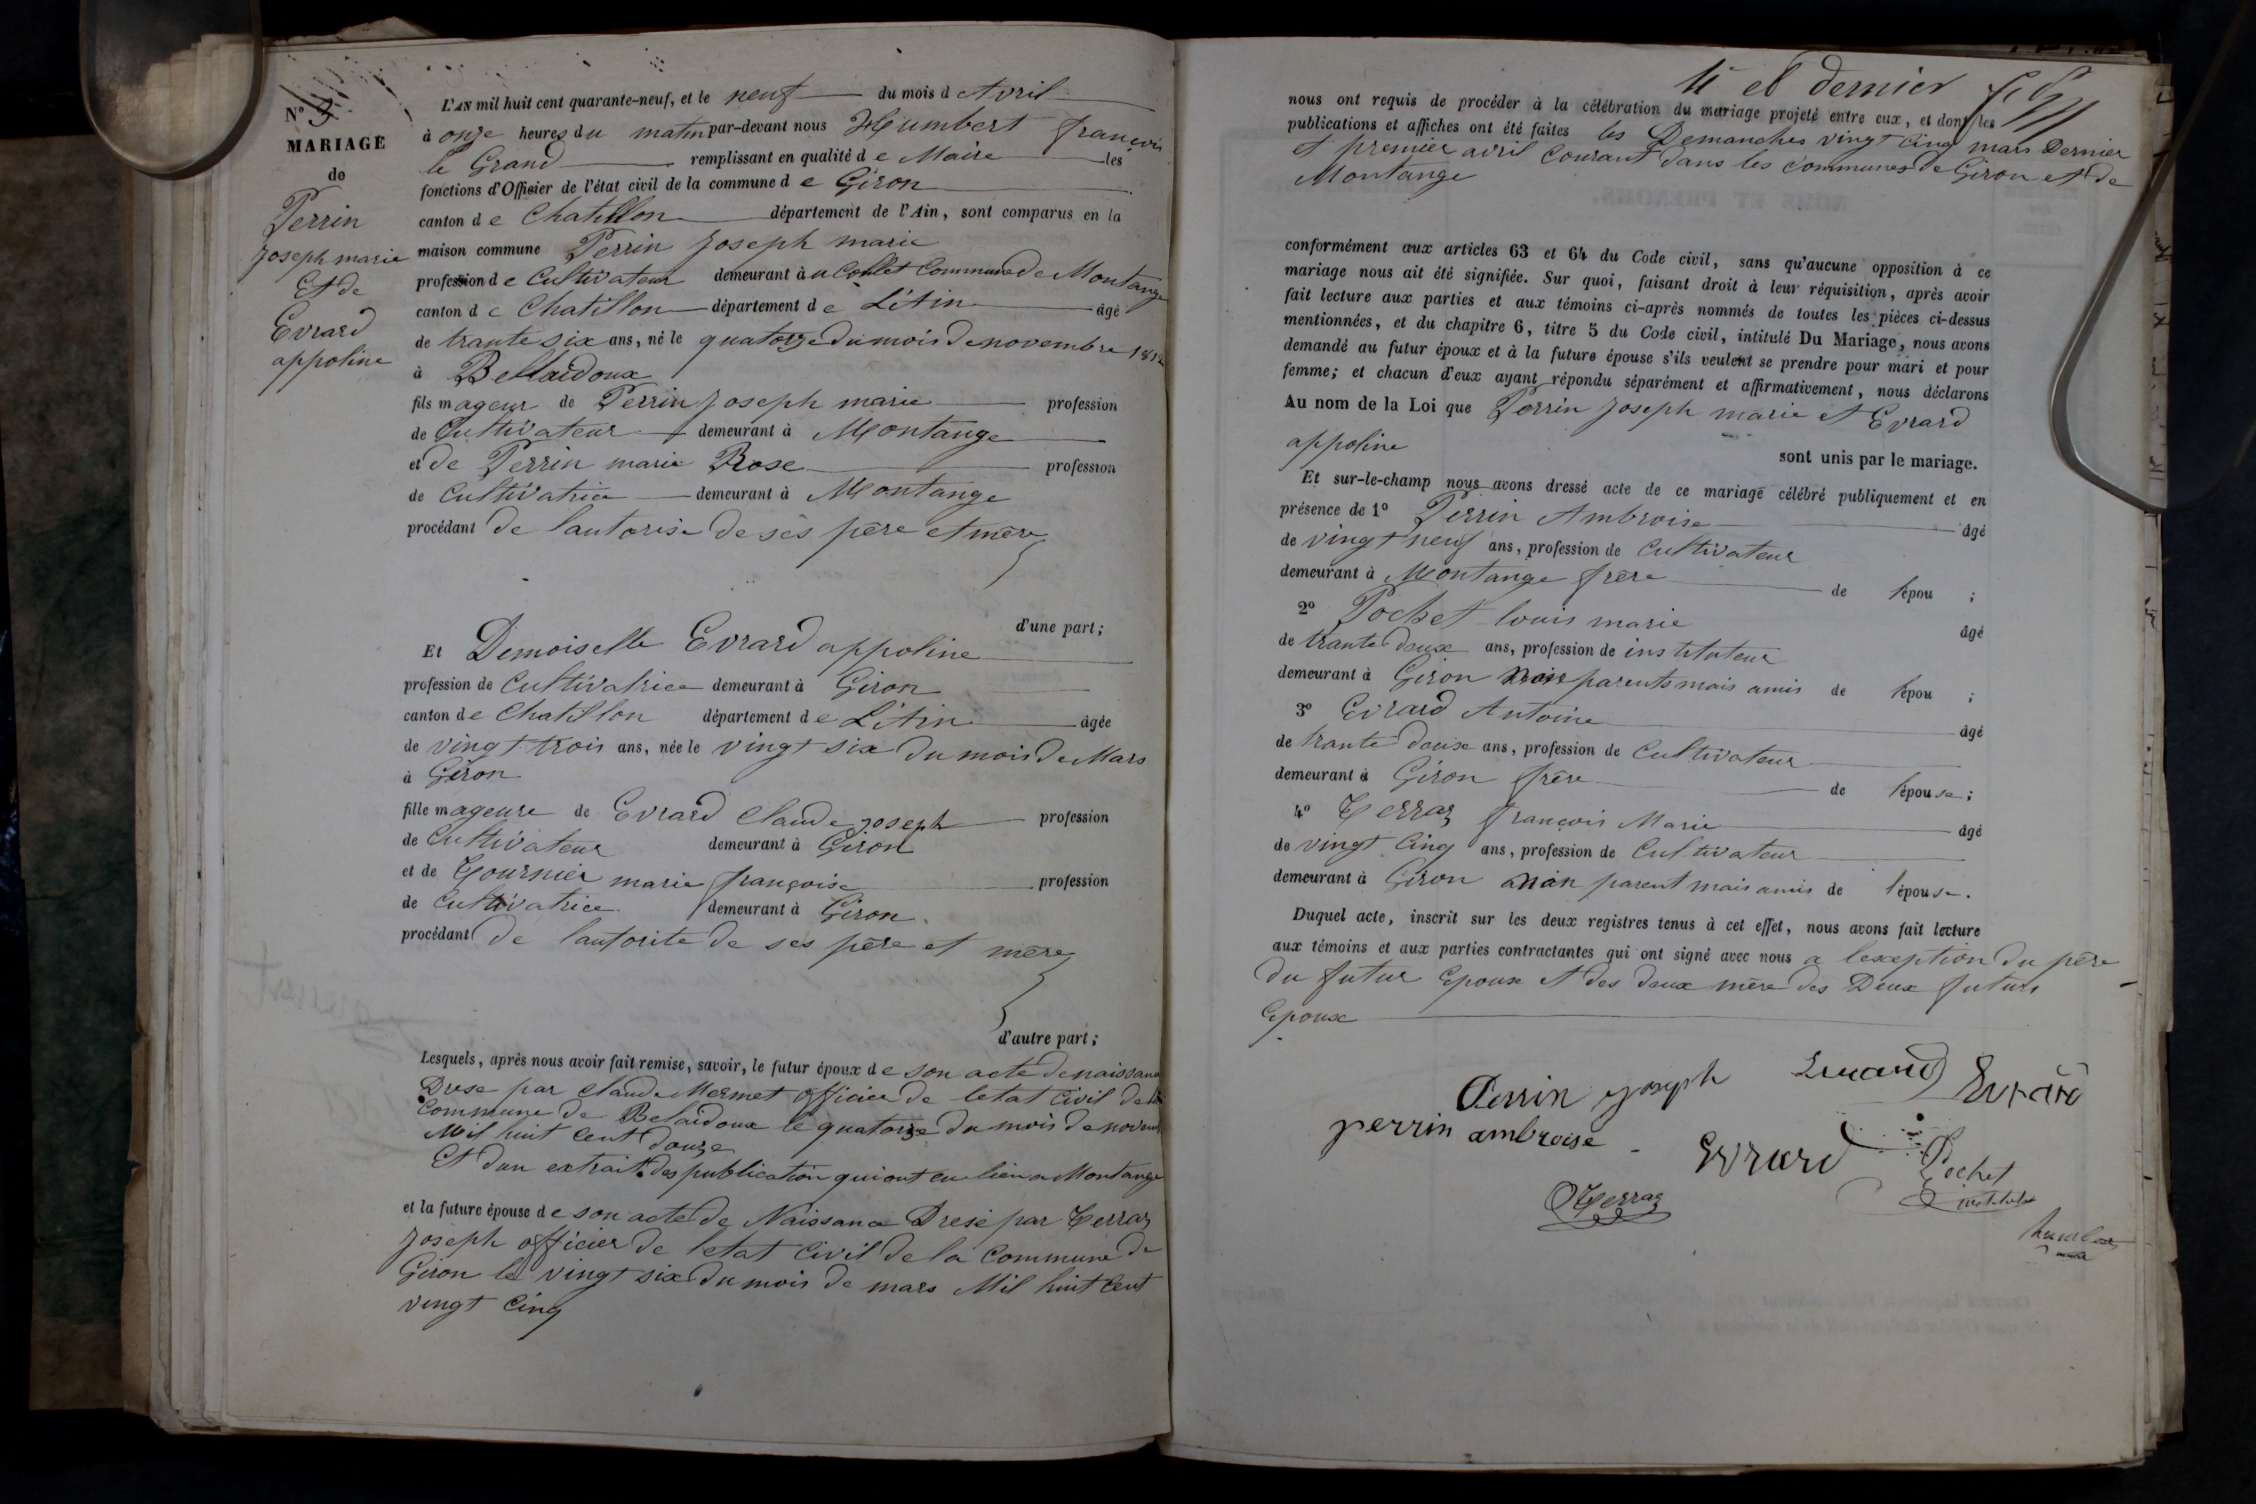 N° 3
MARIAGE
de
Perrin
Joseph marie
Et de
Evrard
appoline
L'AN mil huit cent quarante-neuf, et le neuf du mois d Avril
à onze heures du matin par-devant nous Humbert françois
le Grand remplissant en qualité d e Maire les
fonctions d'Officier de l'état civil de la commune d e Giron
canton d e Chatillon département de l'Ain, sont comparus en la
maison commune Perrin Joseph marie
profession d e Cultivateur demeurant à u Collet Commune de Montange
canton d e Chatillon département d e L'Ain âgé
de trante six ans, né le quatorze du mois de novembre 1812
à Bellaidoux
fils mageur de Perrin Joseph marie profession
de Cultivateur demeurant à Montange
et de Perrin marie Rose profession
de Cultivatrice demeurant à Montange
procédant de l'autorisé de ses père et mère
d'une part;
Et Demoiselle Evrard appoline
profession de Cultivatrice demeurant à Giron
canton d e Chatillon département d e L'Ain âgée
de vingt trois ans, née le vingt six du mois de Mars
à Giron
fille mageure de Evrard Claude joseph profession
de Cultivateur demeurant à Giron
et de Gournier marie françoise profession
de Cultivatrice demeurant à Giron
procédant de lautorite de ses père et mère
d'autre part;
Lesquels, après nous avoir fait remise, savoir, le futur époux d e son acte de naissance
Drese par Claude Mermet officier de letat civil de la
Commune de Belaidoux le quatorze du mois de novemb
Mil huit cent douze
Et dun extrait des publication qui ont eu lieu a Montange
et la future épouse d e son acte de Naissance Dresé par Terraz
Joseph officier de letat civil de la Commune de
Giron le vingt six du mois de mars Mil huit cent
vingt cinq
4 et dernier
nous ont requis de procéder à la célébration du mariage projeté entre eux, et dont les
publications et affiches ont été faites les Demanches vingt cinq mars Dernier
et premier avril Courant dans les communes de Giron et de
Montange
conformément aux articles 63 et 64 du Code civil, sans qu'aucune opposition à ce
mariage nous ait été signifiée. Sur quoi, faisant droit à leur réquisition, après avoir
fait lecture aux parties et aux témoins ci-après nommés de toutes les pièces ci-dessus
mentionnées, et du chapitre 6, titre 5 du Code civil, intitulé Du Mariage, nous avons
demandé au futur époux et à la future épouse s'ils veulent se prendre pour mari et pour
femme; et chacun d'eux ayant répondu séparément et affirmativement, nous déclarons
Au nom de la Loi que Perrin Joseph marie et Evrard
appoline
sont unis par le mariage.
Et sur-le-champ nous avons dressé acte de ce mariage célébré publiquement et en
présence de 1° Perrin Ambroise âgé
de vingt neuf ans, profession de Cultivateur
demeurant à Montange frère de l'épou ;
2° Pochet louis marie âgé
de trante deux ans, profession de instituteur
demeurant à Giron non parents mais amis de l'épou ;
3° Evrard Antoine âgé
de trante deuse ans, profession de Cultivateur
demeurant à Giron frère de l'épouse;
4° Terraz françois Marie âgé
de vingt cinq ans, profession de Cultivateur
demeurant à Giron non parent mais amis de l'épouse.
Duquel acte, inscrit sur les deux registres tenus à cet effet, nous avons fait lecture
aux témoins et aux parties contractantes qui ont signé avec nous a lexeption du père
du futur Epoux et des deux mère des Deux futurs
Epoux
Perrin Joseph Evrard Evrard
perrin ambroise Evrard Pochet
Terraz